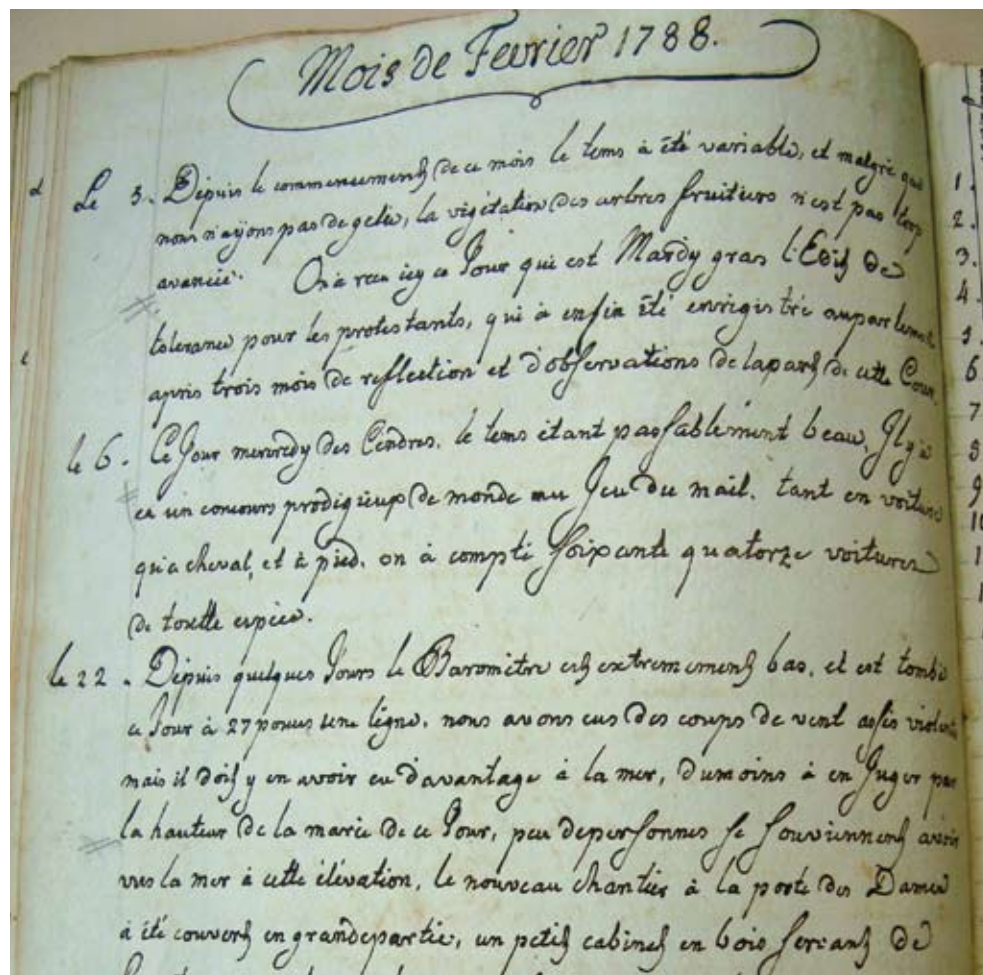 Mois de Fevrier 1788.
Le 5. Depuis le commencement de ce mois le tems à été variable, et malgré que
nous n'ayons pas de gelée, la végétation des arbres fruitiers n'est pas trop
avancée. On a reçu icy ce Jour qui est Mardy gras l'Edit de
tolerance pour les protestants, qui à enfin été enrégistré auparlement
après trois mois de reflection et d'observations de lapart de cette Cour.
le 6. Ce Jour mercredy des Cendres, le tems étant passablement beau, Il y a
eu un concours prodigieux de monde au Jeu du mail, tant en voitures
qu'a cheval, et à pied. on à compté soixante quatorze voitures
de toutte espèce.
le 22. Depuis quelques Jours le Baromètre est extremement bas, et est tombé
ce Jour à 27 pouces une ligne. nous avons eus des coups de vent assés violents
mais il doit y en avoir eu d'avantage à la mer, dumoins à en Juger par
la hauteur de la marée de ce Jour, peu depersonnes se souviennent avoir
vus la mer à cette élévation, le nouveau chantier à la porte des Dames
à été couvert en grandepartie, un petit cabinet en bois servant de
1.
2.
3.
4.
5.
6.
7
8
9
10
1
1